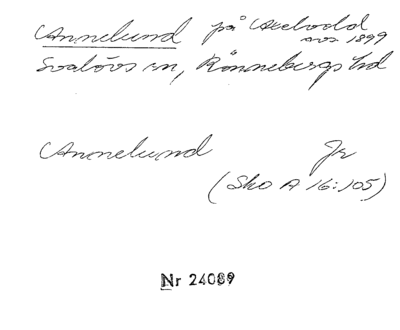 Annelund på Axelvold
avs 1899
Svalövs sn, Rönnebergs hd
Annelund Jr
(Sko A 16:105)
Nr 24089